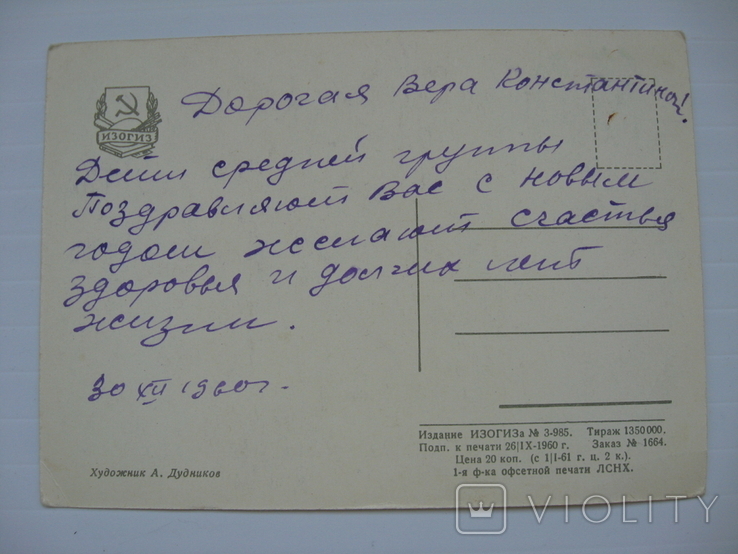 Дорогая Вера Константиновна!
ИЗОГИЗ
Дети средней группы
Поздравляют Вас с новым
годом желают счастья
здоровья и долгих лет
жизни.
30 XII 1960 г.
Издание ИЗОГИЗа № 3-985. Тираж 1350000.
Подп. к печати 26|IX-1960 г. Заказ № 1664.
Цена 20 коп. (с 1|I-61 г. ц. 2 к.).
1-я ф-ка офсетной печати ЛСНХ.
Художник А. Дудников
VIOLITY